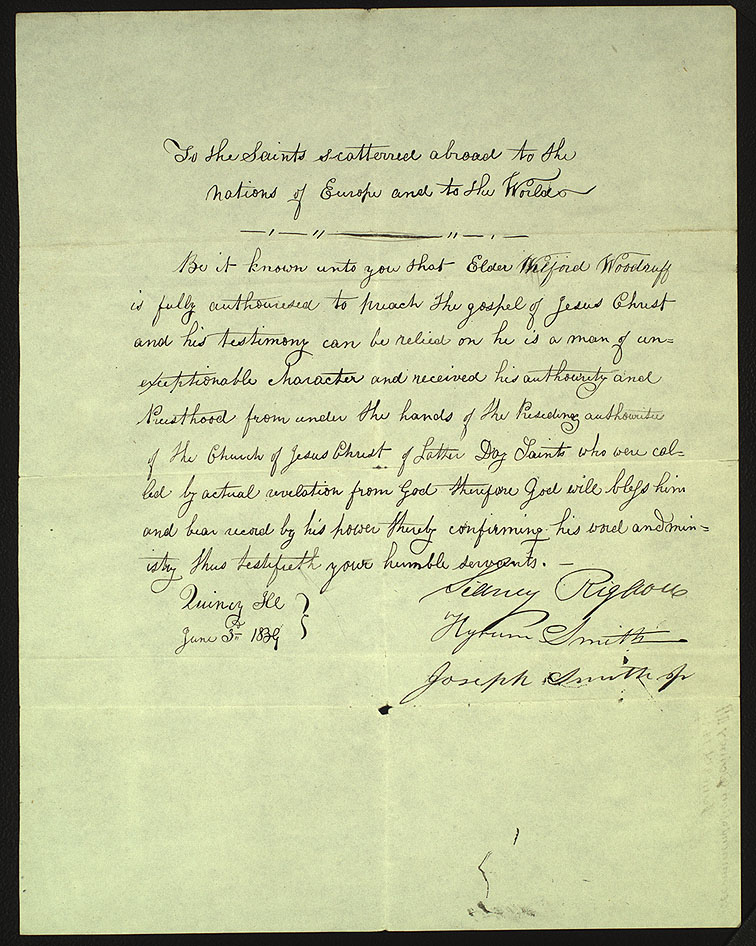 To the Saints scatterred abroad to the
nations of Europe and to the World
Be it known unto you that Elder Wilford Woodruff
is fully authouresed to preach the gospel of Jesus Christ
and his testimony can be relied on he is a man of un=
exceptionable character and received his authourity and
Priesthood from under the hands of the Presiding authourites
of the Church of Jesus Christ of Latter Day Saints who were cal=
led by actual revelation from God therefore God will bless him
and bear record by his power thereby confirming his word and min=
istry thus testifieth your humble servants. —
Quincy Ill
June 3rd 1839
Sidney Rigdon
Hyrum Smith
Joseph Smith jr